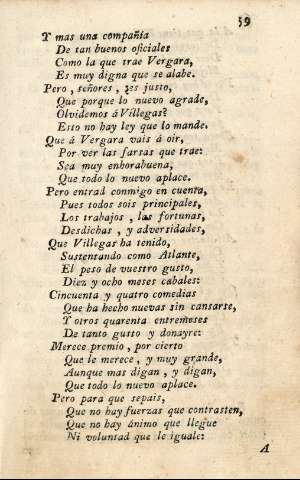 39
Y mas una compañía
De tan buenos oficiales
Como la que trae Vergara,
Es muy digna que se alabe.
Pero, señores, ¿es justo,
Que porque lo nuevo agrade,
Olvidemos á Villegas?
Esto no hay ley que lo mande.
Que á Vergara vais á oir,
Por ver las farsas que trae:
Sea muy enhorabuena,
Que todo lo nuevo aplace.
Pero entrad conmigo en cuenta,
Pues todos sois principales,
Los trabajos, las fortunas,
Desdichas, y adversidades,
Que Villegas ha tenido,
Sustentando como Atlante,
El peso de vuestro gusto,
Diez y ocho meses cabales:
Cincuenta y quatro comedias
Que ha hecho nuevas sin cansarse,
Y otros quarenta entremeses
De tanto gusto y donayre:
Merece premio, por cierto
Que le merece, y muy grande,
Aunque mas digan, y digan,
Que todo lo nuevo aplace.
Pero para que sepais,
Que no hay fuerzas que contrasten,
Que no hay ánimo que llegue
Ni voluntad que le iguale:
A